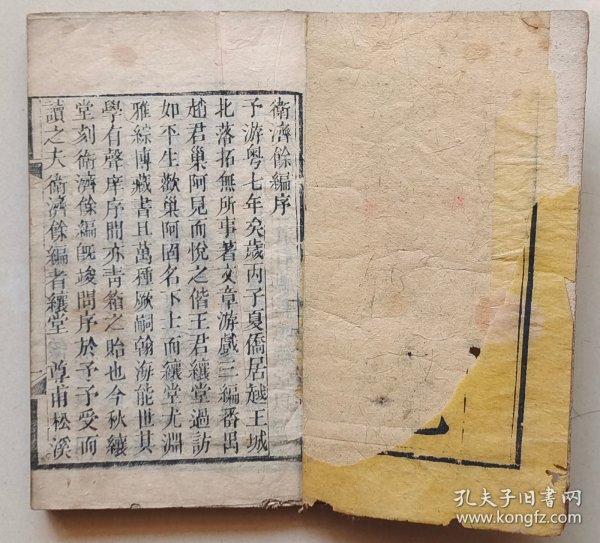 衛濟餘編序
予游粤七年矣歲丙子夏僑居越王城
北落拓無所事著文章游戲三編番禺
趙君巢阿見而悅之偕王君纕堂過訪
如平生歡巢阿固名下士而纕堂尤淵
雅綜博藏書且萬種厥嗣翰海能世其
學有聲庠序間亦靑箱之貽也今秋纕
堂刻衛濟餘編旣竣問序於予予受而
讀之大衛濟餘編者纕堂尊甫松溪
孔夫子旧書网
www.kongfz.com